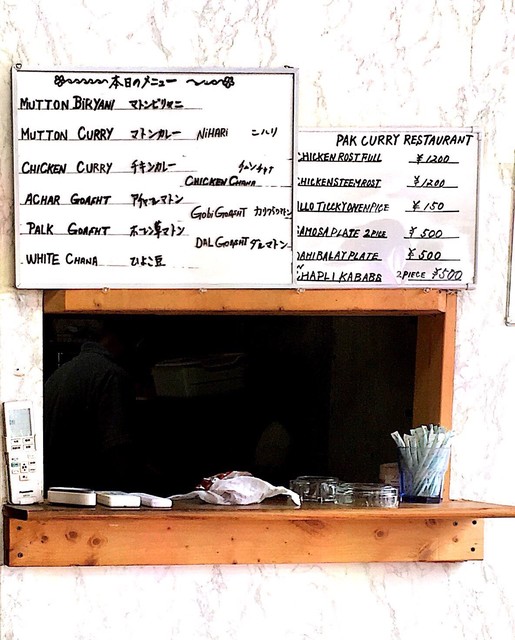 本日のメニュー
MUTTON BIRYANI マトンビリヤニ
MUTTON CURRY マトンカレー NIHARI ニハリ
CHICKEN CURRY チキンカレー
CHICKEN CHANA
ACHAR GOAFHT アチャールマトン
GOBI GOAFHT
PALK GOAFHT ホーレン草マトン
DAL GOAFHT ダルマトン
WHITE CHANA ひよこ豆
PAK CURRY RESTAURANT
CHICKEN ROST FULL ¥1200
CHICKEN STEEM ROST ¥1200
¥150
SAMOSA PLATE 2 PICE ¥500
DAHI BALAY PLATE ¥500
CHAPLI KABABS 2 PIECE ¥500